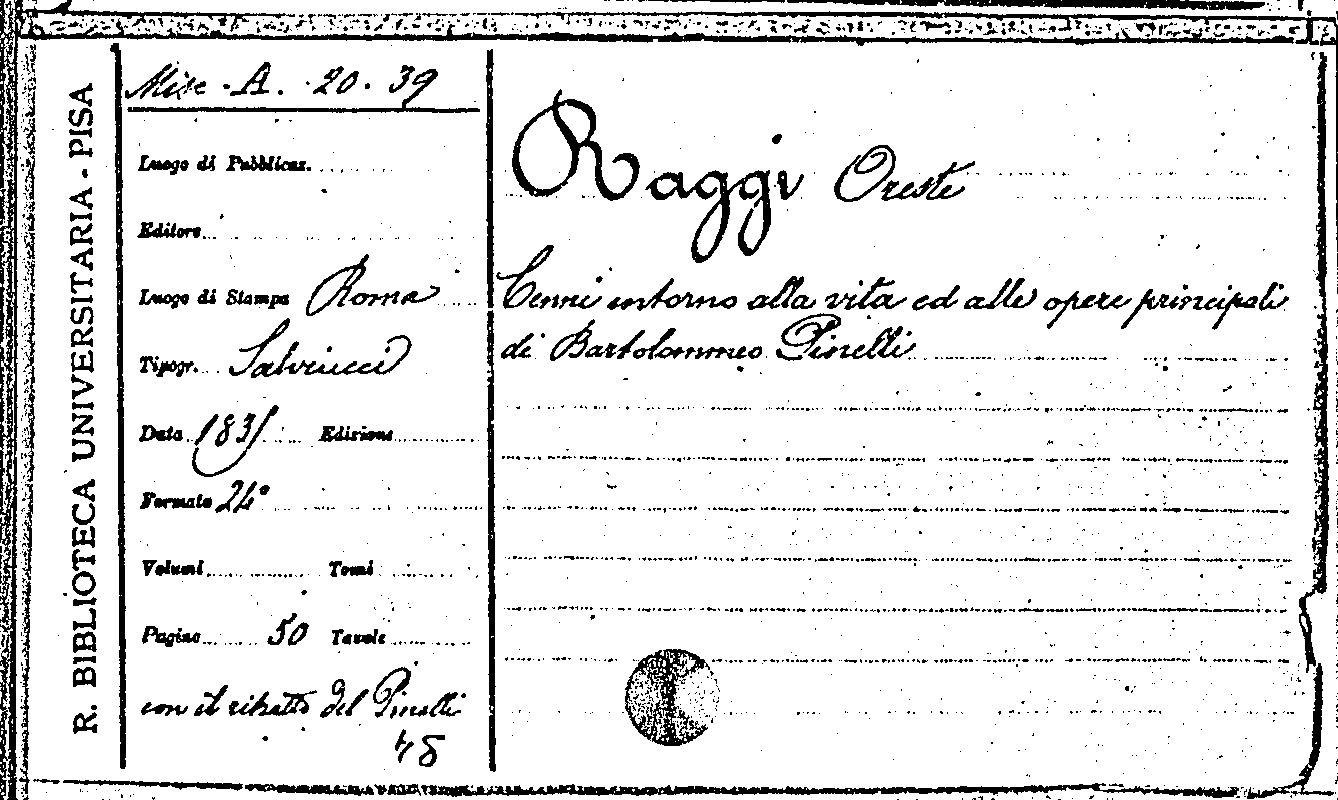 R. BIBLIOTECA UNIVERSITARIA - PISA
Misc. A. 20. 39
Luogo di Pubblicaz.
Editore
Luogo di Stampa Roma
Tipogr. Salviucci
Data 1835 Edizione
Formato 24°
Volumi Tomi
Pagine 50 Tavole
con il ritratto del Pinelli
48
Raggi Oreste
Cenni intorno alla vita ed alle opere principali
di Bartolommeo Pinelli